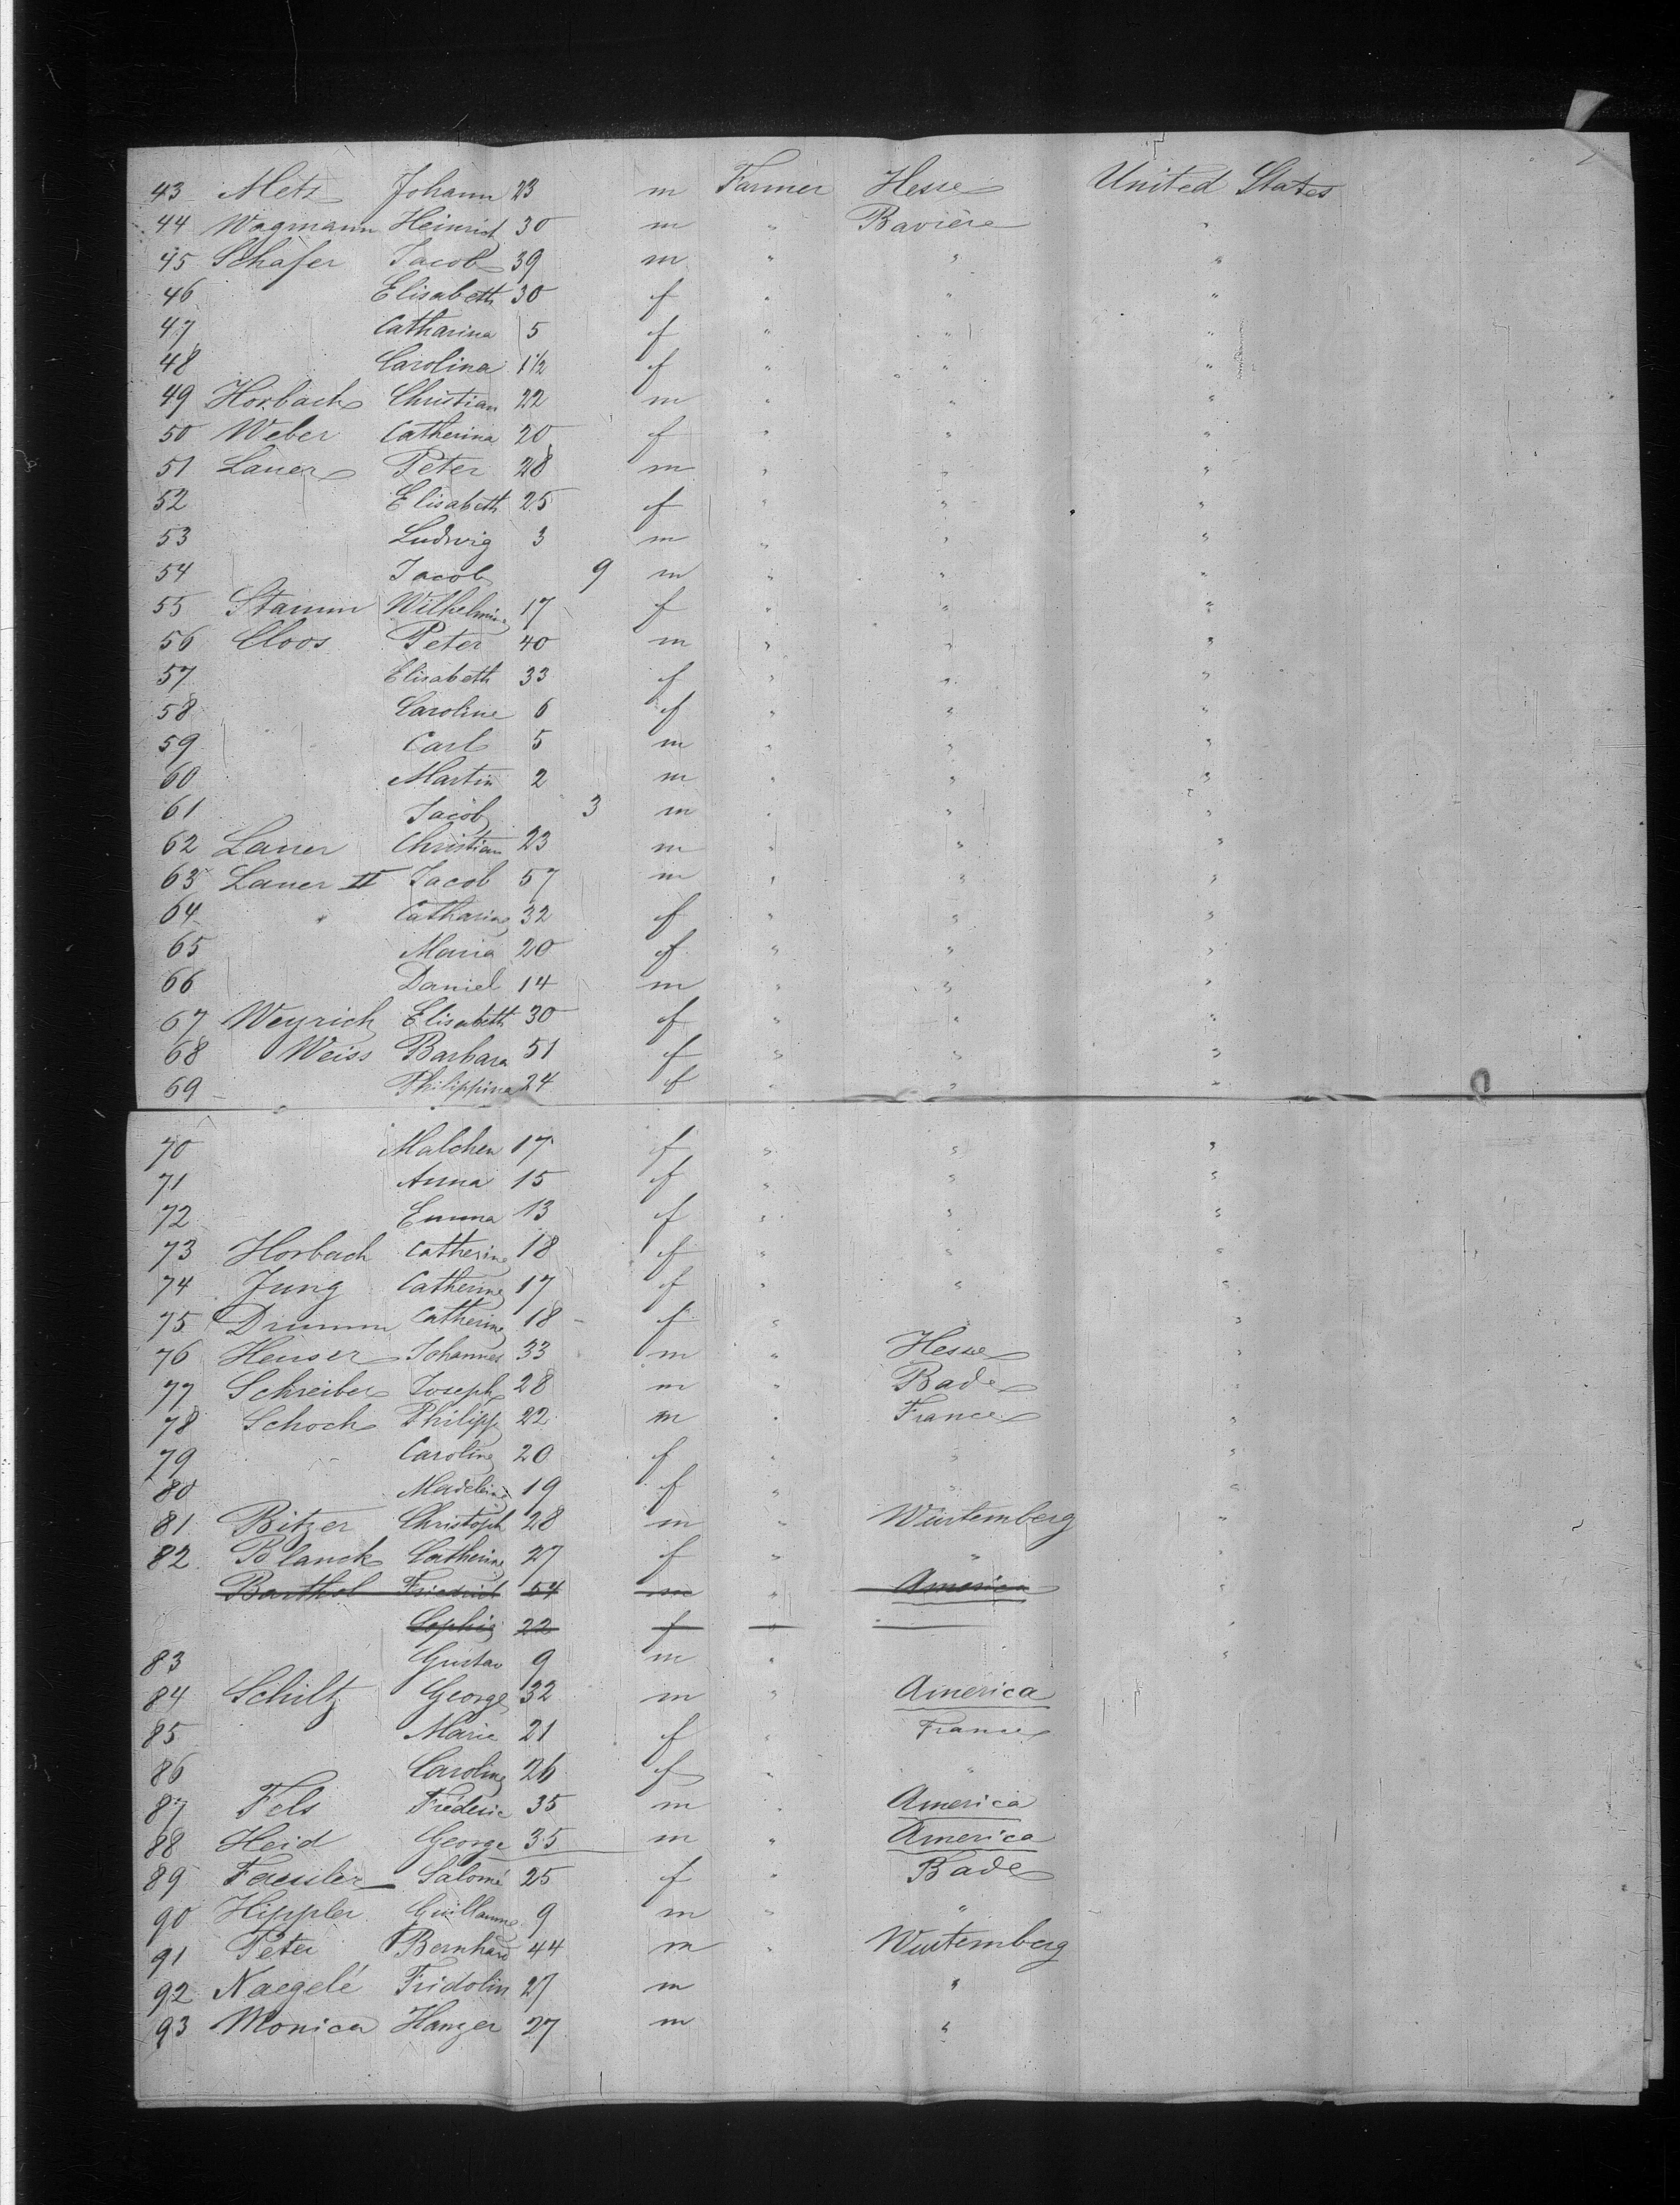 43 Metz Johann 23 m Farmer Hesse United States
44 Wagmann Heinrich 30 m " Bavière "
45 Schäfer Jacob 39 m " " "
46 Elisabeth 30 f " " "
47 Catharina 5 f " " "
48 Carolina 1½ f " " "
49 Horbach Christian 22 m " " "
50 Weber Catherina 20 f " " "
51 Lauer Peter 28 m " " "
52 Elisabeth 25 f " " "
53 Ludwig 3 m " " "
54 Jacob 9 m " " "
55 Stamm Wilhelmine 17 f " " "
56 Cloos Peter 40 m " " "
57 Elisabeth 33 f " " "
58 Caroline 6 f " " "
59 Carl 5 m " " "
60 Martin 2 m " " "
61 Jacob 3 m " " "
62 Lauer Christian 23 m " " "
63 Lauer II Jacob 57 m " " "
64 " Catharine 32 f " " "
65 Maria 20 f " " "
66 Daniel 14 m " " "
67 Weyrich Elisabeth 30 f " " "
68 Weiss Barbara 51 f " " "
69 Philippina 24 f " " "
70 Malchen 17 f " " "
71 Anna 15 f " " "
72 Emma 13 f " " "
73 Horbach Catherine 18 f " " "
74 Jung Catherine 17 f " " "
75 Drumm Catherine 18 f " " "
76 Heuser Johannes 33 m " Hesse "
77 Schreiber Joseph 28 m " Bade "
78 Schoch Philipp 22 m " France "
79 Caroline 20 f " " "
80 Madeleine 19 f " " "
81 Bitzer Christoph 28 m " Würtemberg "
82 Blanck Catherine 27 f " " "
Barthol Friedrich 54 m " America "
Sophie 22 f " "
83 Gustav 9 m " "
84 Schiltz George 32 m " America
85 Marie 21 f " France
86 Caroline 26 f " "
87 Fels Fréderic 35 m " America
88 Heid George 35 m " America
89 Faessler Salomé 25 f " Bade
90 Hippler Guillaume 9 m " "
91 Peter Bernhard 44 m " Wurtemberg
92 Naegelé Fridolin 27 m "
93 Monica Hanzer 27 m "